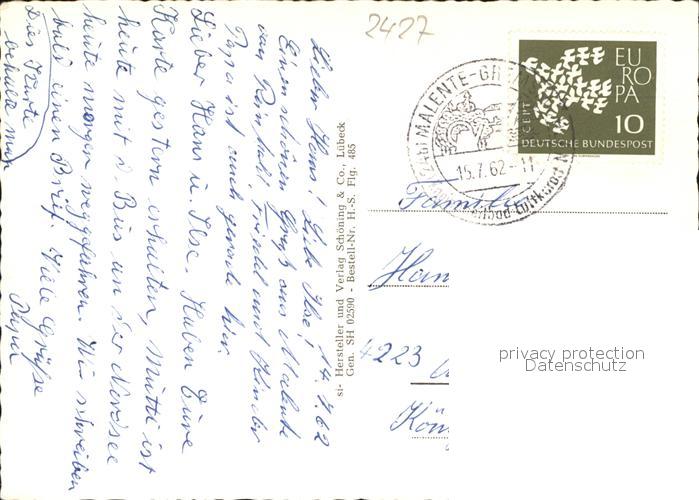 2427
Lieber Hans! Liebe Ilse! 14.7.62
Einen schönen Gruß aus Malente
von Reinhold Trudel und Kinder
Papa ist auch gerade hier.
Lieber Hans u. Ilse. Haben Eure
Karte gestern erhalten, Mutti ist
heute mit d. Bus an der Nordsee
heute morgen weggefahren. Wir schreiben
bald einen Brief. Viele Grüße
Papa
Dies Karte
si- Hersteller und Verlag Schöning & Co., Lübeck
Gen. SH 02590 - Bestell-Nr. H.-S. Flg. 485
(24b) MALENTE-GREMS
15.7.62-11
Luftkurort
EUROPA
CEPT
10
DEUTSCHE BUNDESPOST
Familie
Han
4223
Kön
privacy protection
Datenschutz